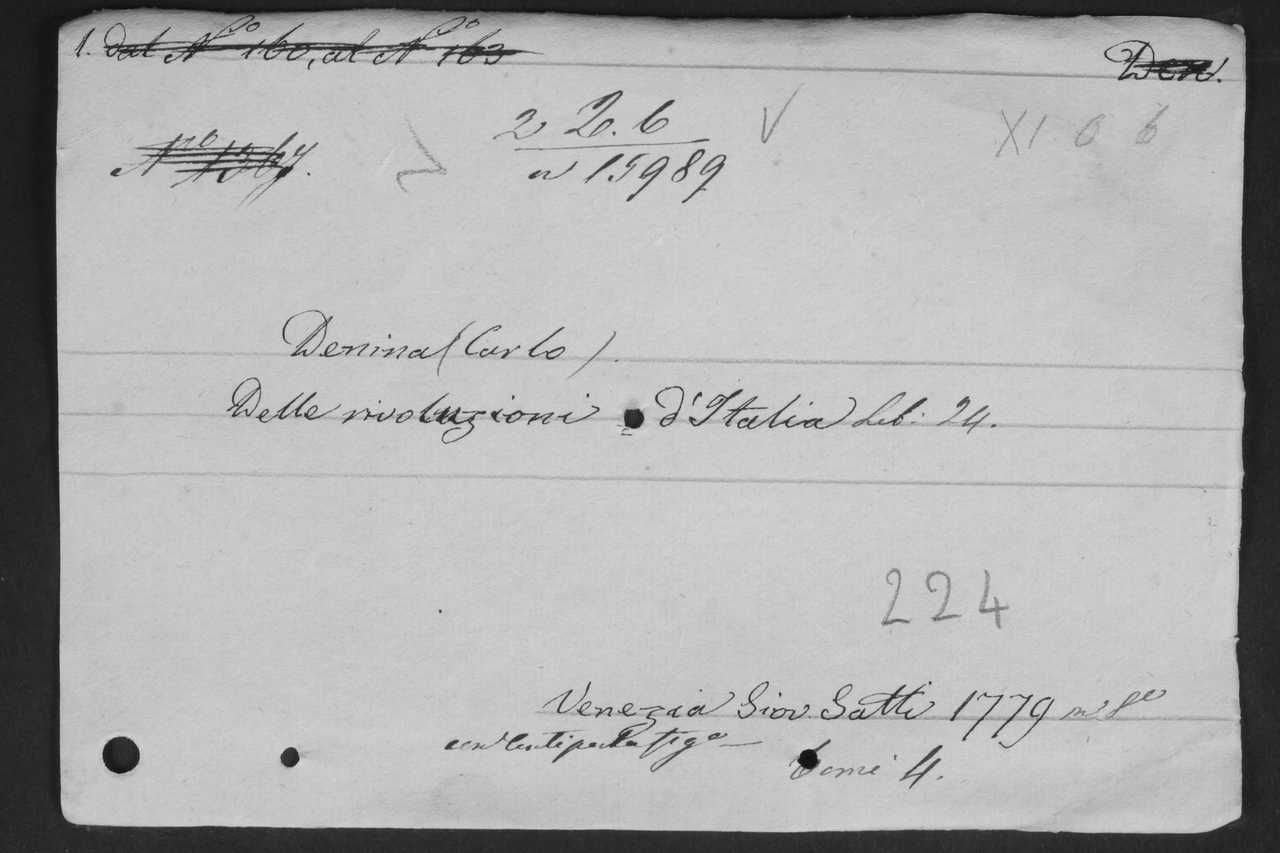 1. dal Nº 160, al Nº 163
Den.
Nº 1367.
2 2.6
n 15989
V
XI 6 6
Denina (Carlo).
Delle rivoluzioni d'Italia Lib: 24.
224
Venezia Giov. Gatti 1779 in 8º
con antiporta figª
tomi 4.